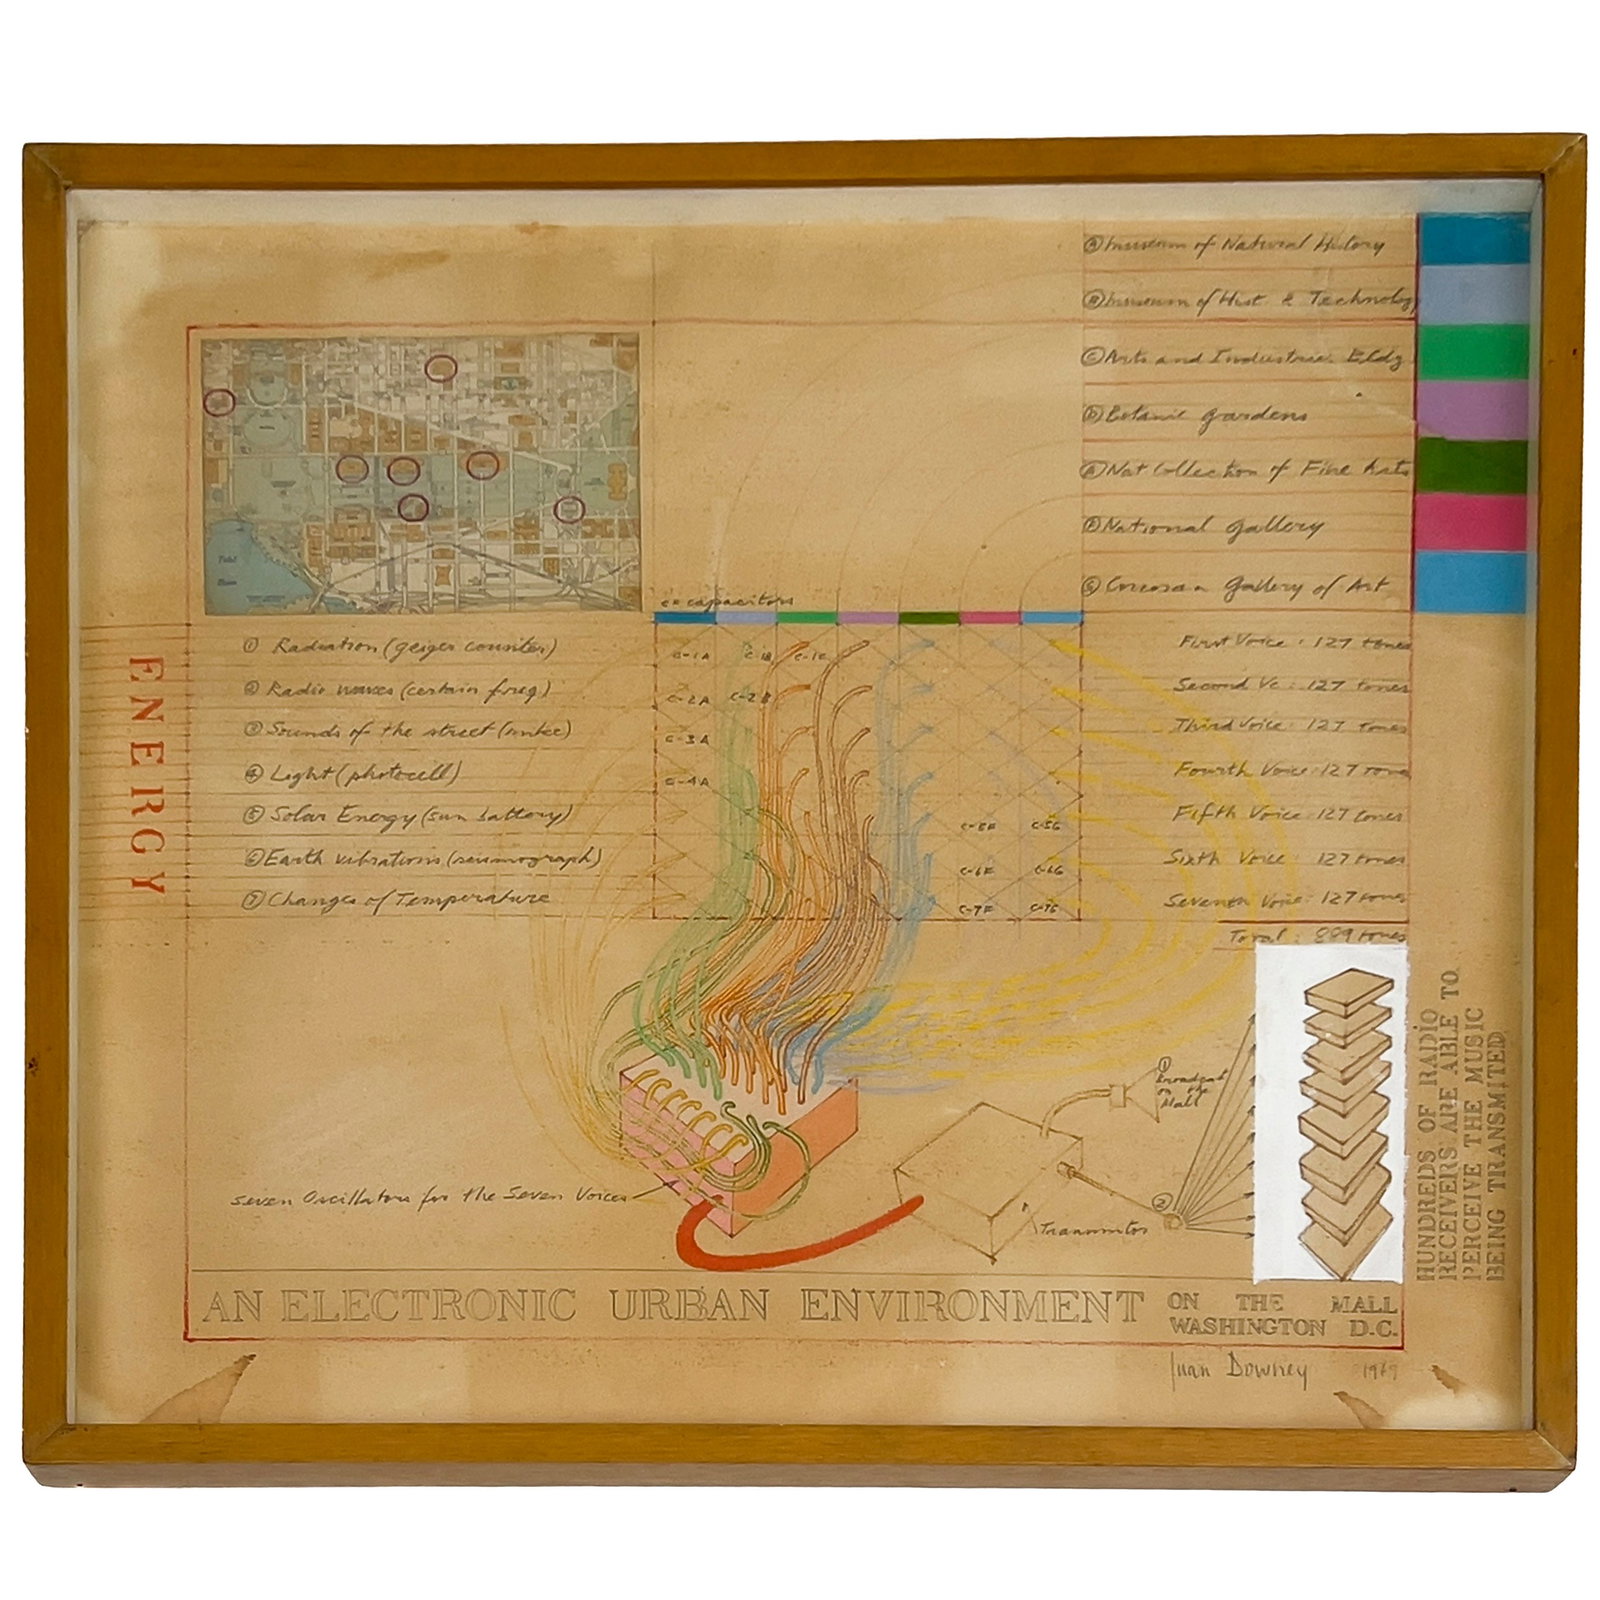 Ⓐ Museum of Natural History
Ⓑ Museum of Hist & Technology
Ⓒ Arts and Industries Bldg
Ⓓ Botanic gardens
Ⓔ Nat Collection of Fine Arts
Ⓕ National gallery
Ⓖ Corcoran Gallery of Art
c = capacitors
ENERGY
① Radiation (geiger counter)
② Radio waves (certain freq)
③ Sounds of the street (mike)
④ Light (photocell)
⑤ Solar Energy (sun battery)
⑥ Earth vibrations (seismograph)
⑦ Changes of Temperature
C-1A C-1B C-1C
C-2A C-2B
C-3A
C-4A
C-5F C-5G
C-6F C-6G
C-7F C-7G
First Voice : 127 tones
Second Vc : 127 tones
Third Voice : 127 tones
Fourth Voice : 127 tones
Fifth Voice : 127 tones
Sixth Voice : 127 tones
Seventh Voice : 127 tones
Total : 889 tones
Seven Oscillators for the Seven Voices
Transmitor
①
Broadcast
on the
Mall
②
HUNDREDS OF RADIO
RECEIVERS ARE ABLE TO
PERCEIVE THE MUSIC
BEING TRANSMITED
AN ELECTRONIC URBAN ENVIRONMENT
ON THE MALL
WASHINGTON D.C.
Juan Downey 1969